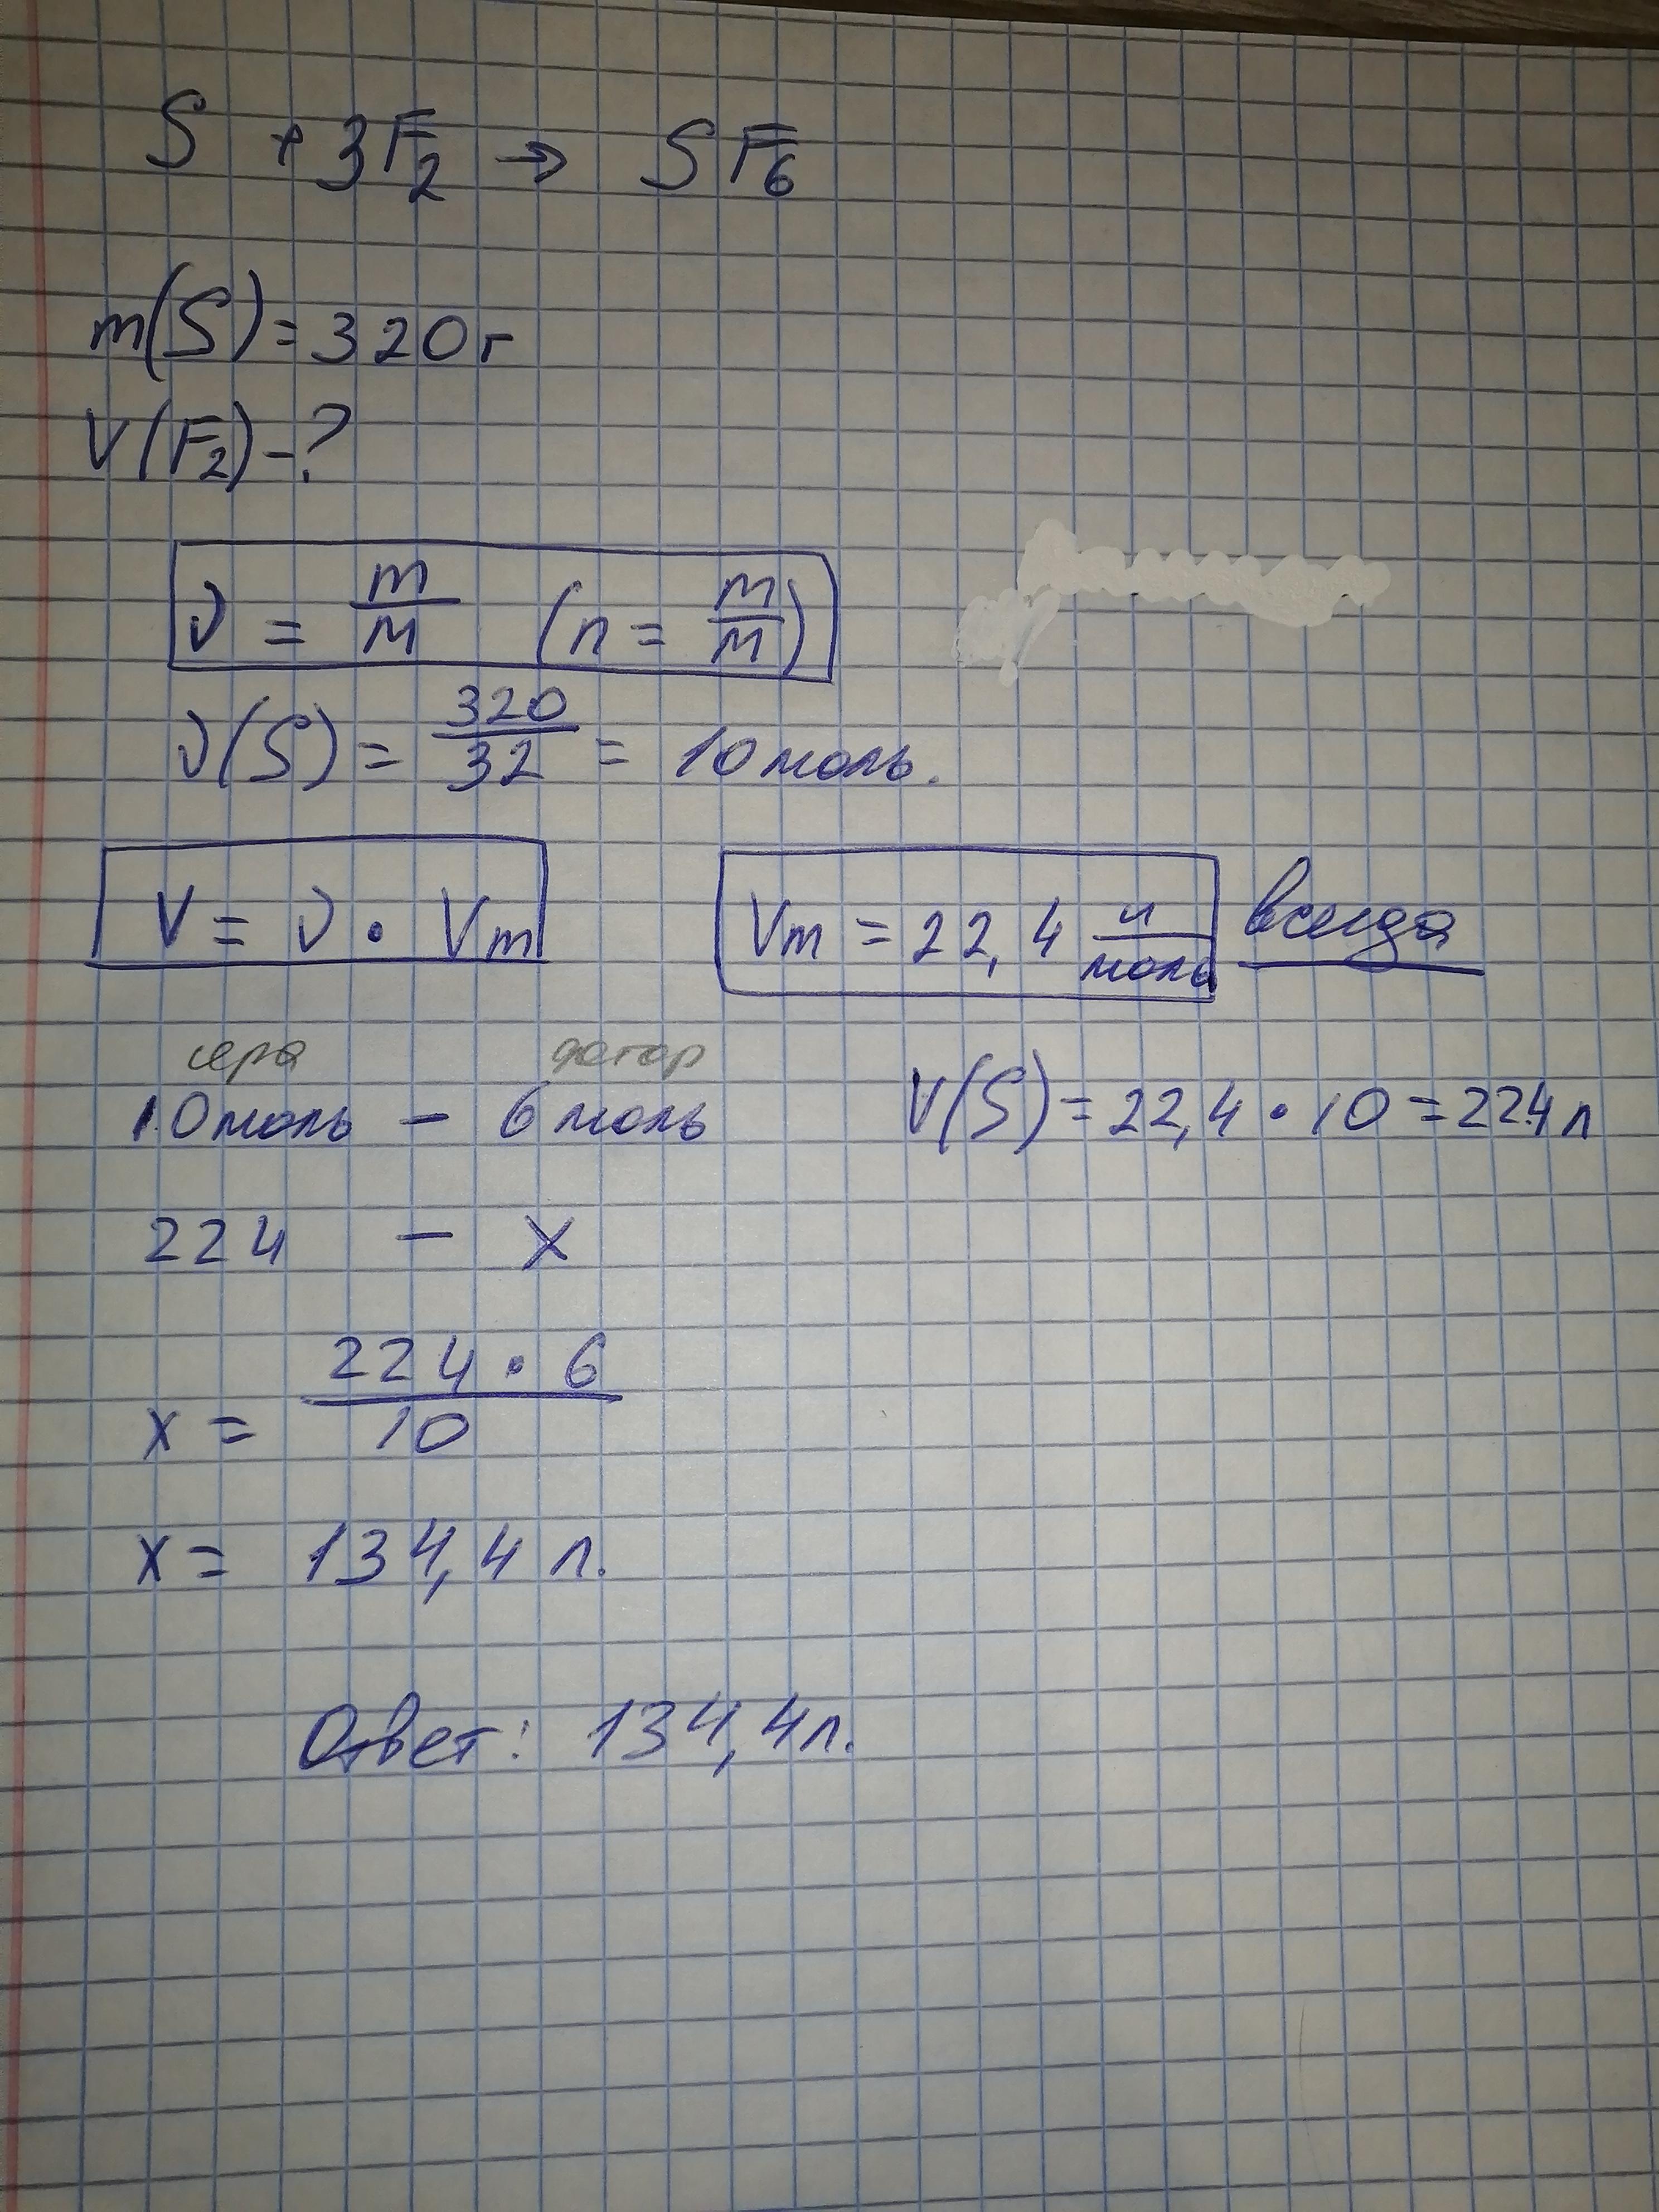 S + 3F₂ → SF₆
m(S) = 320 г
V(F₂) - ?
ν = m/M (n = m/M)
ν(S) = 320/32 = 10 моль.
V = ν • Vm
Vm = 22,4 л/моль всегда
сера фтор
10 моль – 6 моль
V(S) = 22,4 • 10 = 224 л
224 – x
x = 224 • 6/10
x = 134,4 л.
Ответ: 134,4 л.